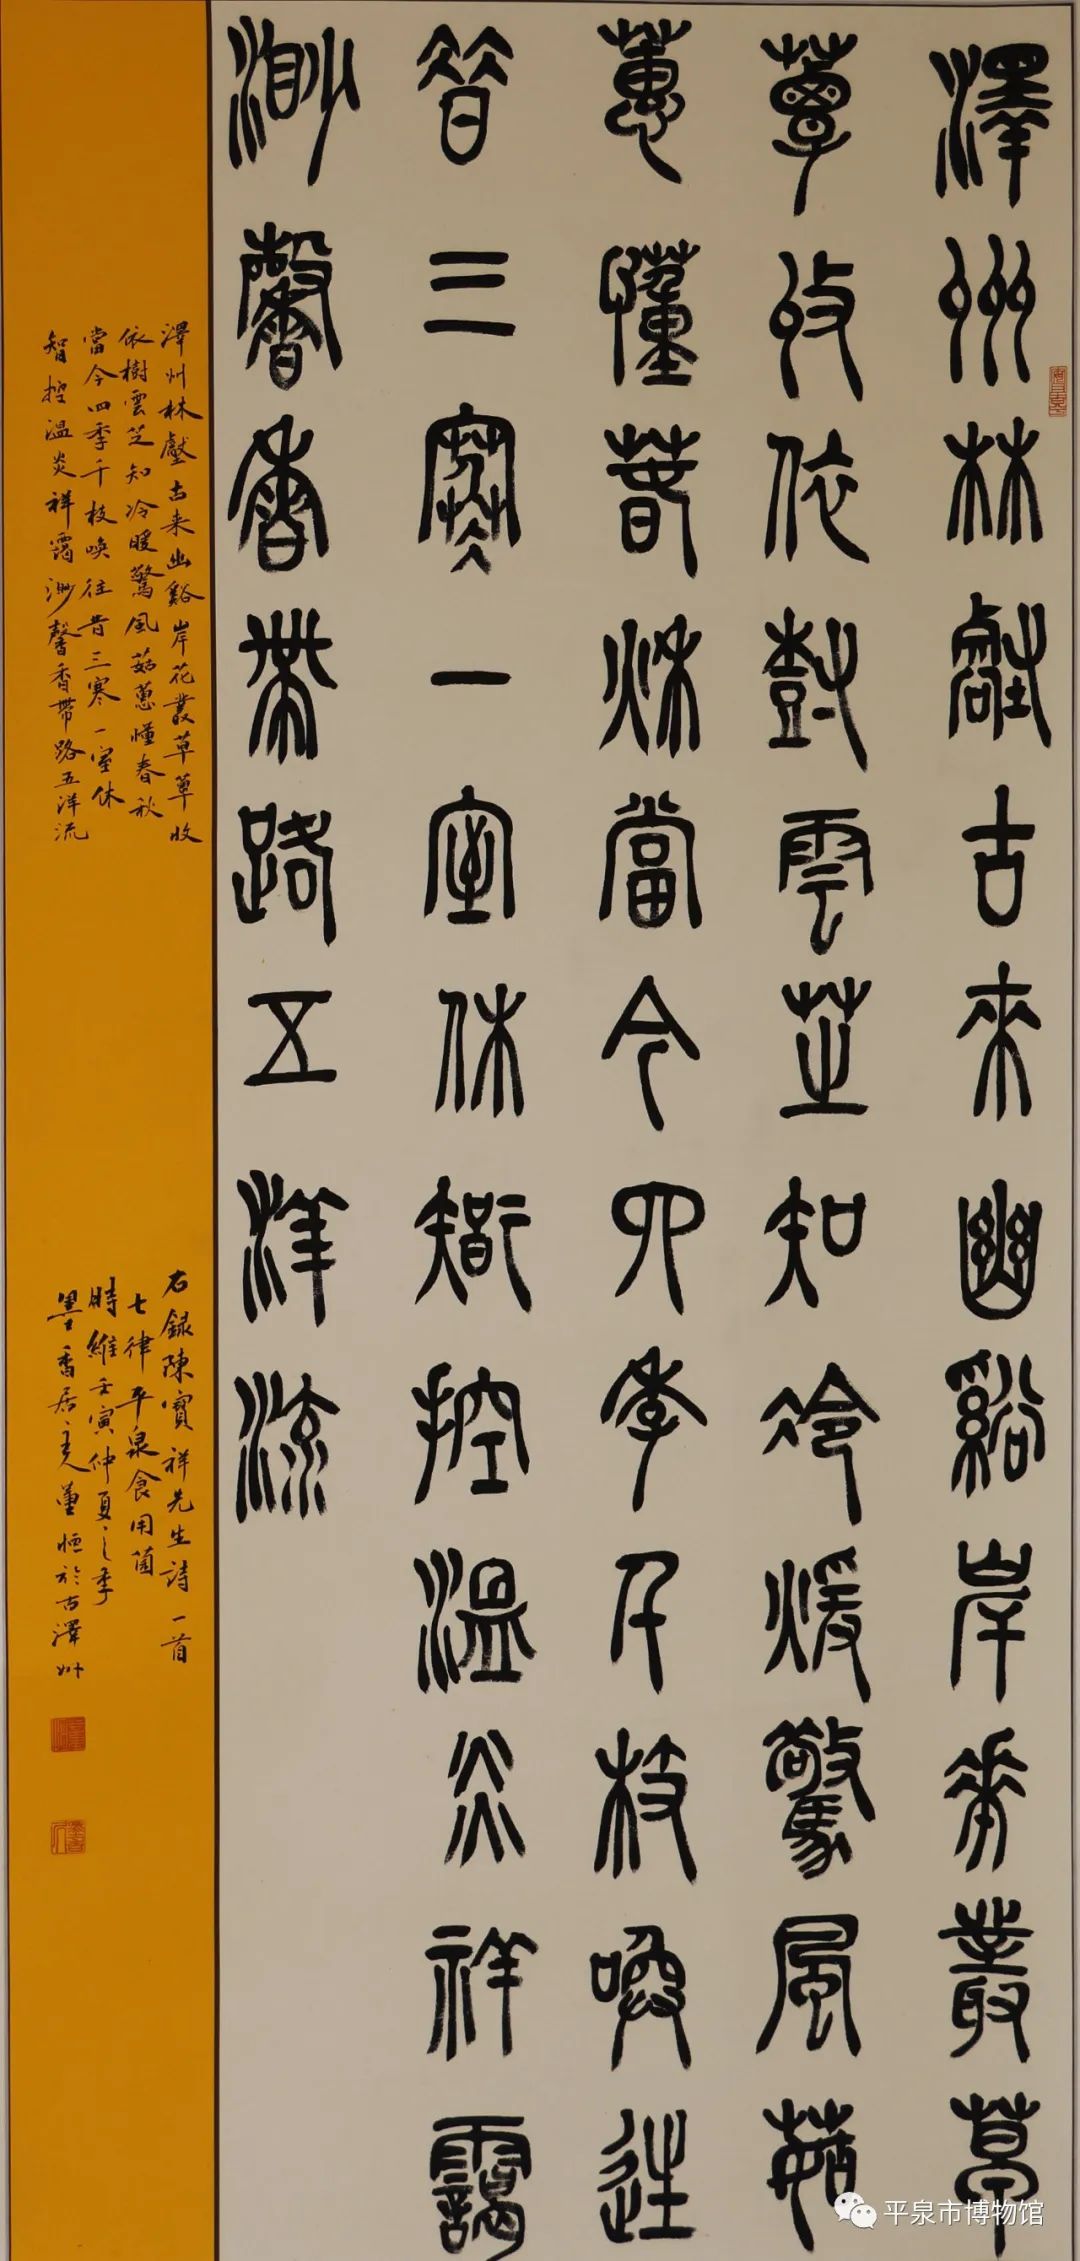 澤州林壑古來幽谿岸花叢草
蕈收依樹雲芝知冷煖驚風菇
蕙懂春秋當今四季千枝喚往
昔三寒一室休智控溫炎祥靄
渺馨香帶路五洋流
澤州林壑古来幽谿岸花叢草蕈收
依樹雲芝知冷暖驚風菇蕙懂春秋
當今四季千枝喚往昔三寒一室休
智控温炎祥靄渺馨香帶路五洋流
右録陳寶祥先生詩一首
七律平泉食用菌
時維壬寅仲夏之季
墨香居主人董恒於古澤州
平泉市博物馆